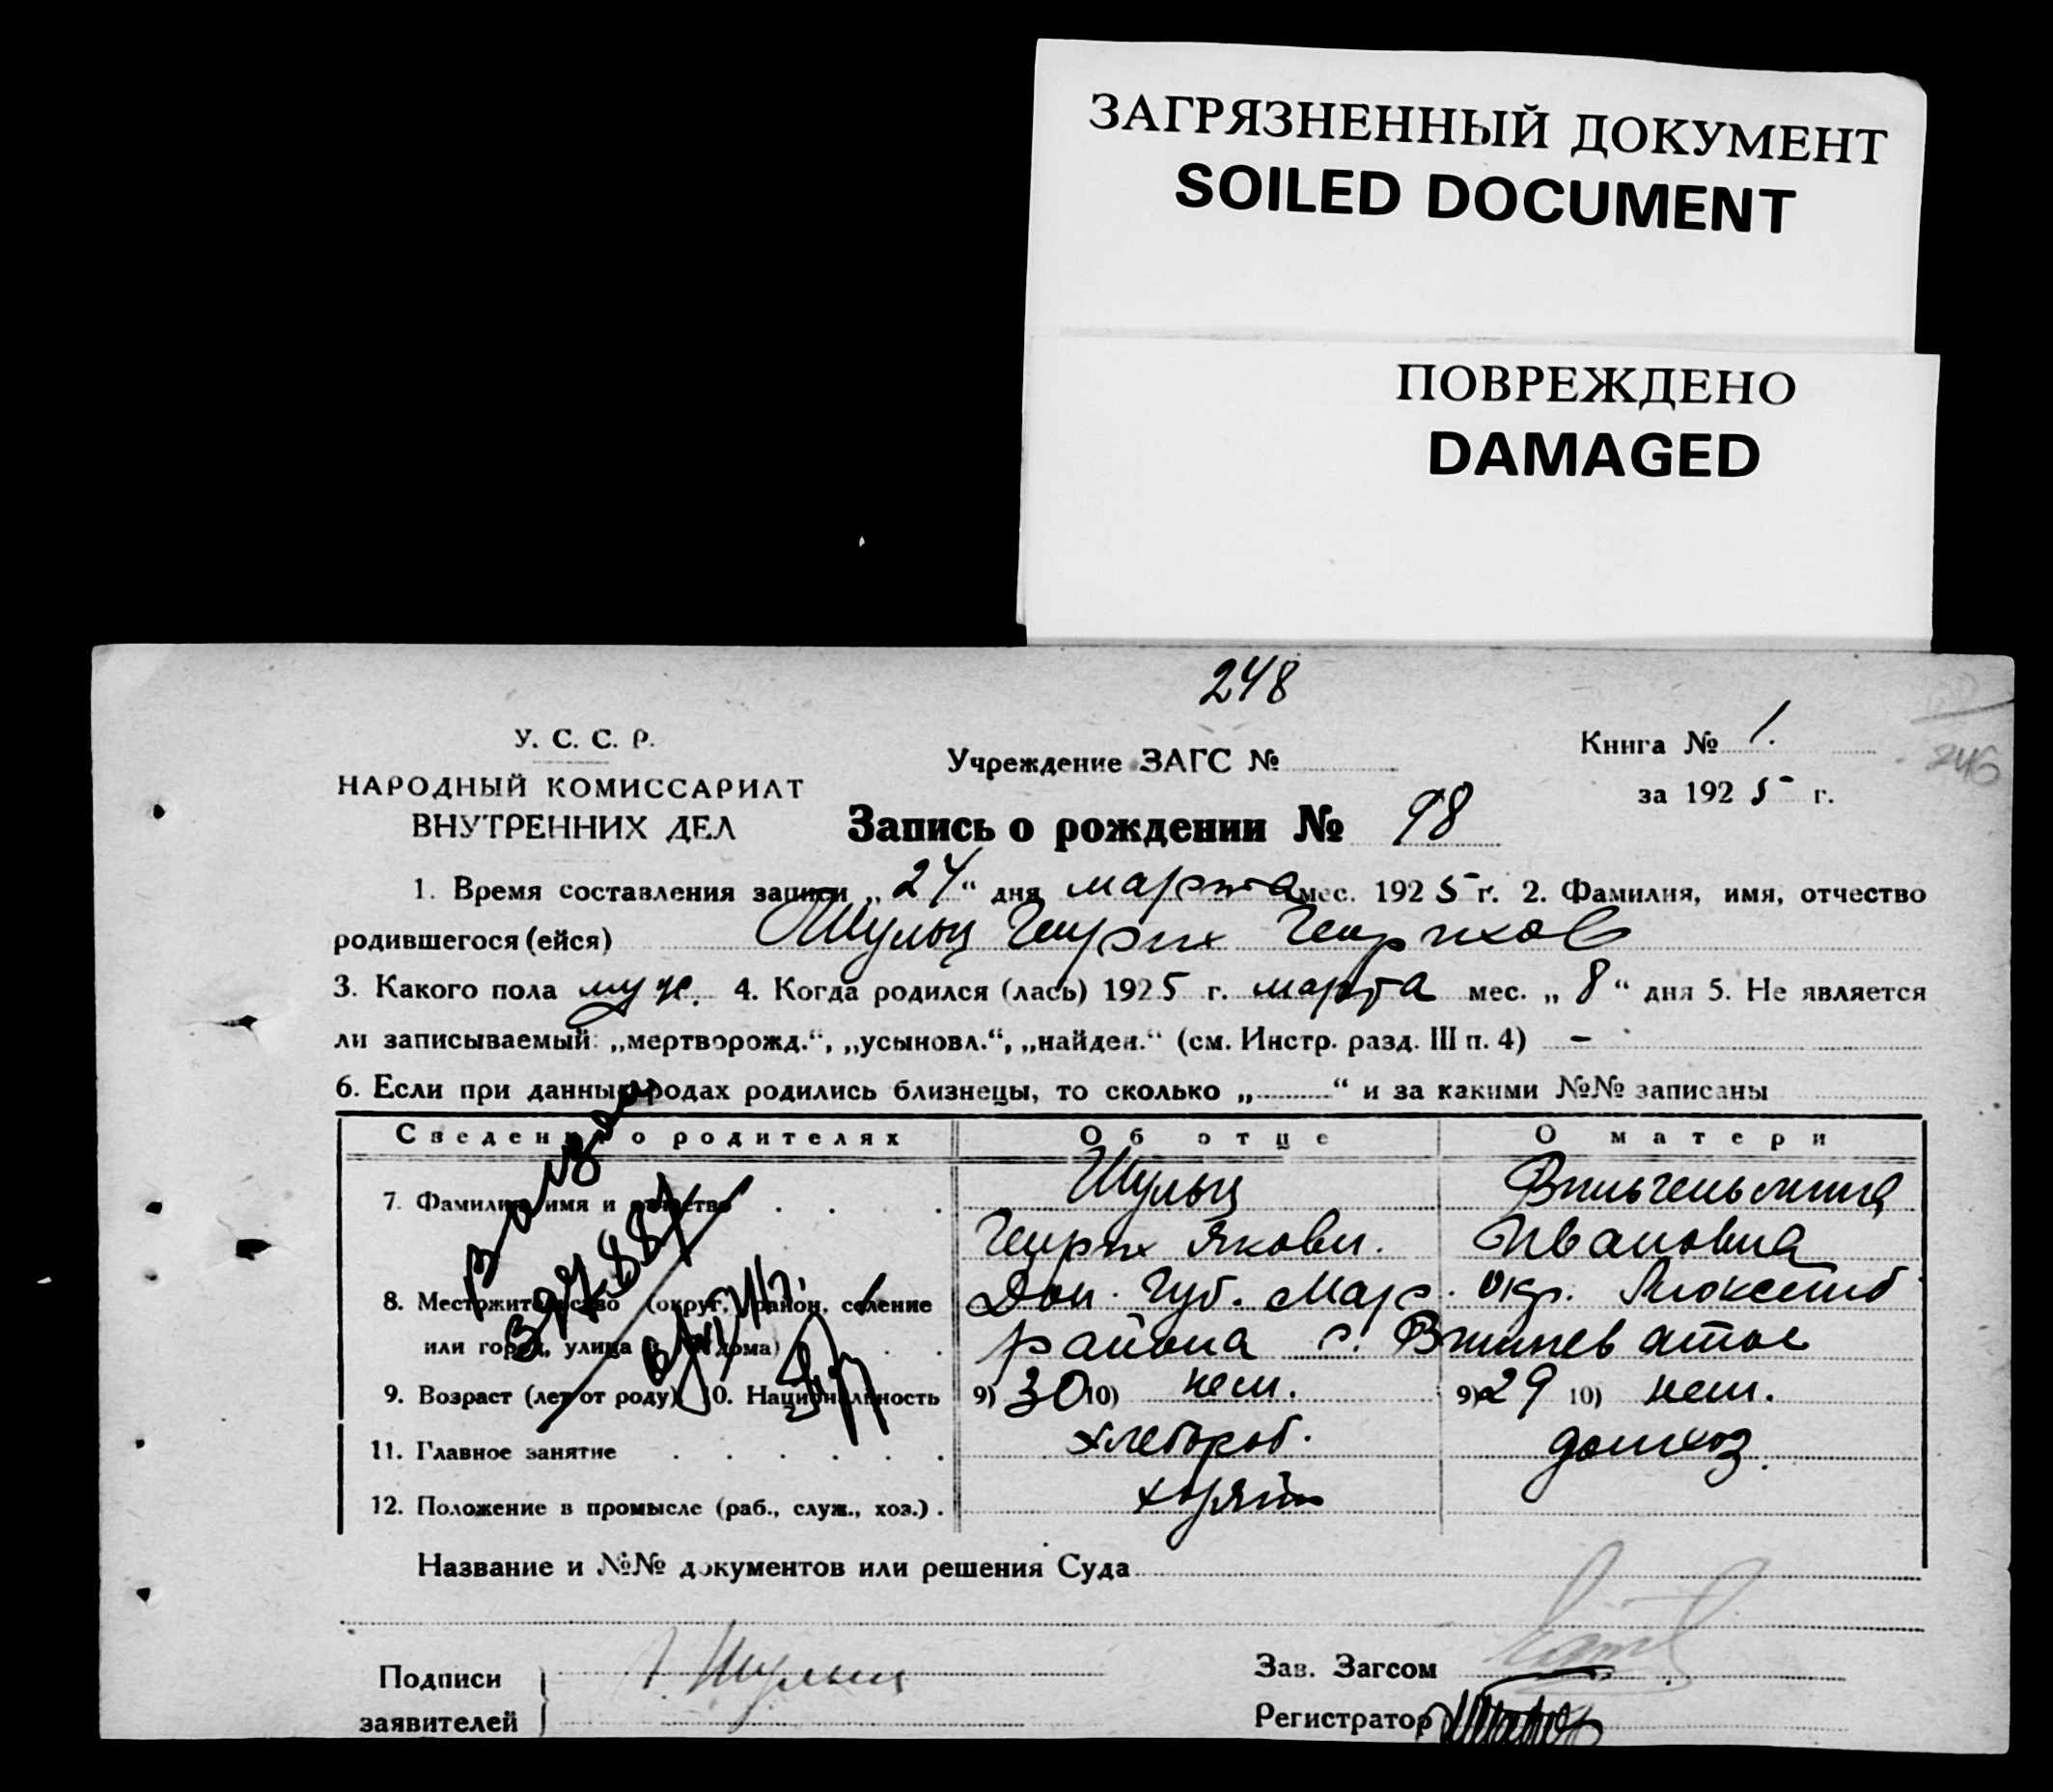 ЗАГРЯЗНЕННЫЙ ДОКУМЕНТ
SOILED DOCUMENT
ПОВРЕЖДЕНО
DAMAGED
248
У. С. С. Р.
НАРОДНЫЙ КОМИССАРИАТ
ВНУТРЕННИХ ДЕЛ
Учреждение ЗАГС №
Запись о рождении № 98
Книга № 1.
за 1925 г.
246
1. Время составления записи „24“ дня марта мес. 1925 г. 2. Фамилия, имя, отчество
родившегося (ейся) Шульц Генрих Генрихов
3. Какого пола муж. 4. Когда родился (лась) 1925 г. марта мес. „8“ дня 5. Не является
ли записываемый: „мертворожд.“, „усыновл.“, „найден.“ (см. Инстр. разд. III п. 4) –
6. Если при данных родах родились близнецы, то сколько „..........“ и за какими №№ записаны
Сведения о родителях Об отце О матери
7. Фамилия, имя и отчество . . . Шульц Вильгельмина
Генрих Яковл. Ивановна
8. Местожительство (округ, район, селение Дон. Губ. Мар. окр. Люксемб
или город, улица и № дома) . . района с.
9. Возраст (лет от роду) 10. Национальность 9) 30 10) нем. 9) 29 10) нем.
11. Главное занятие . . . . . . хлебороб. домхоз.
12. Положение в промысле (раб., служ., хоз.) . хозяин
Название и №№ документов или решения Суда
Подписи
заявителей
Шульц
Зав. Загсом
Регистратор